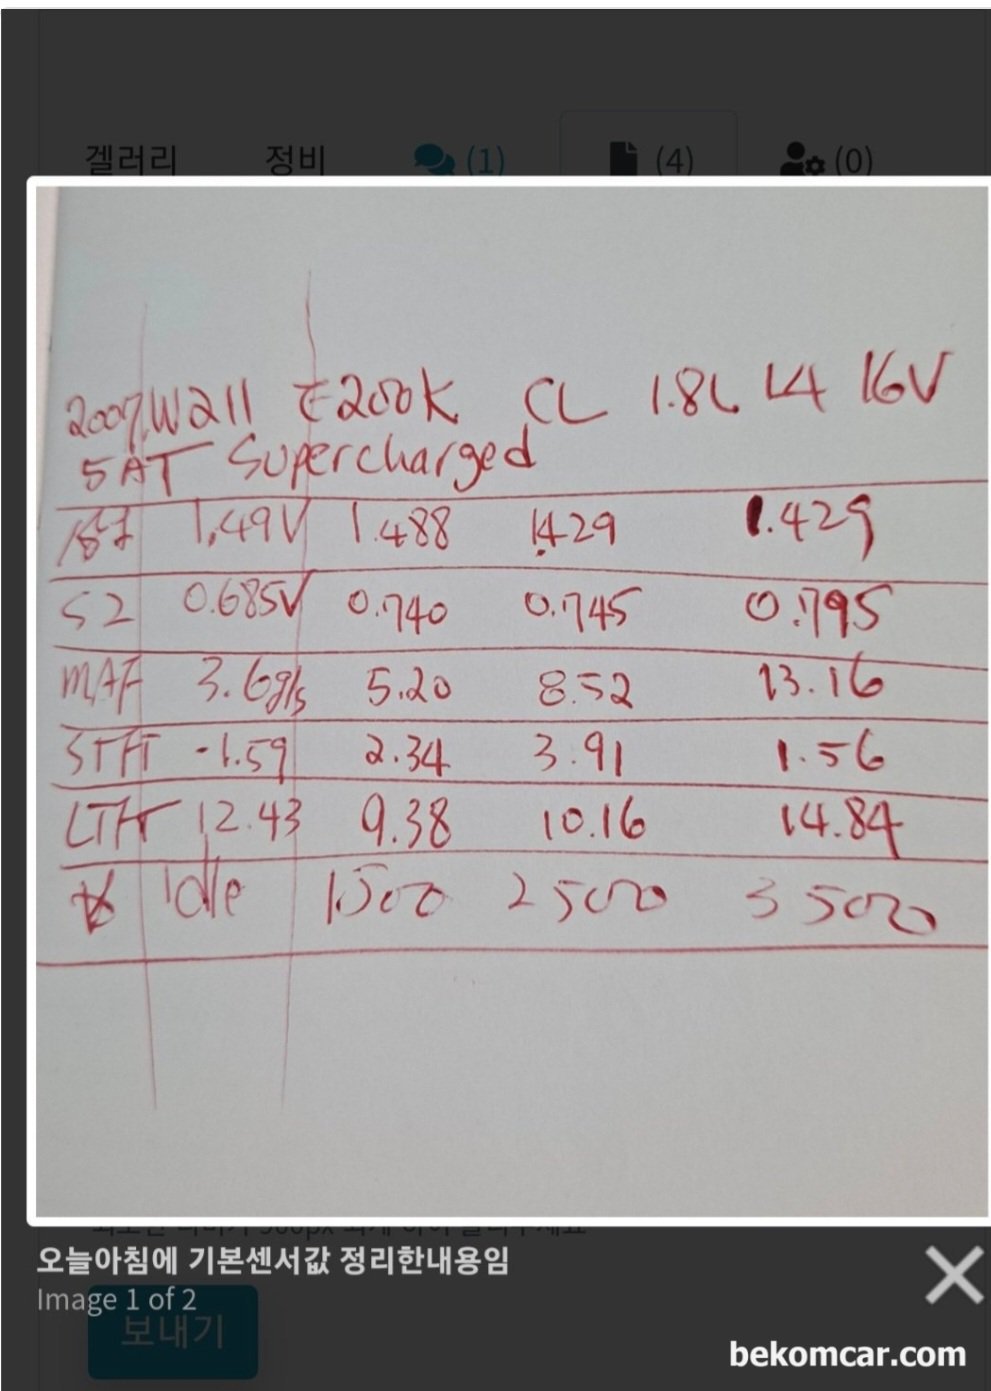 겔러리 정비 (1) (4) (0)
2007. W211 E200K CL 1.8L L4 16V
5AT Supercharged
1.49V 1.488 1.429 1.429
S2 0.685V 0.740 0.745 0.795
MAF 3.6g/s 5.20 8.52 13.16
STFT -1.59 2.34 3.91 1.56
LTFT 12.43 9.38 10.16 14.84
Idle 1500 2500 3500
오늘아침에 기본센서값 정리한내용임
Image 1 of 2
보내기
bekomcar.com